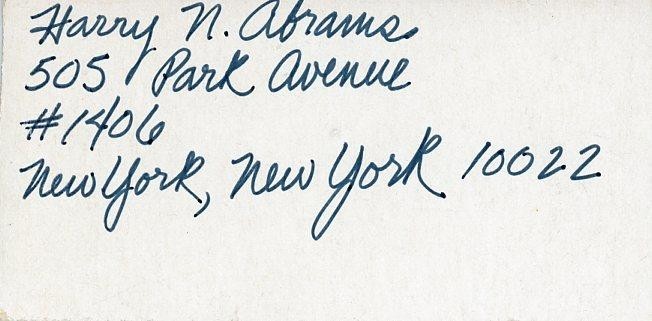 Harry N. Abrams
505 Park Avenue
#1406
New York, New York 10022